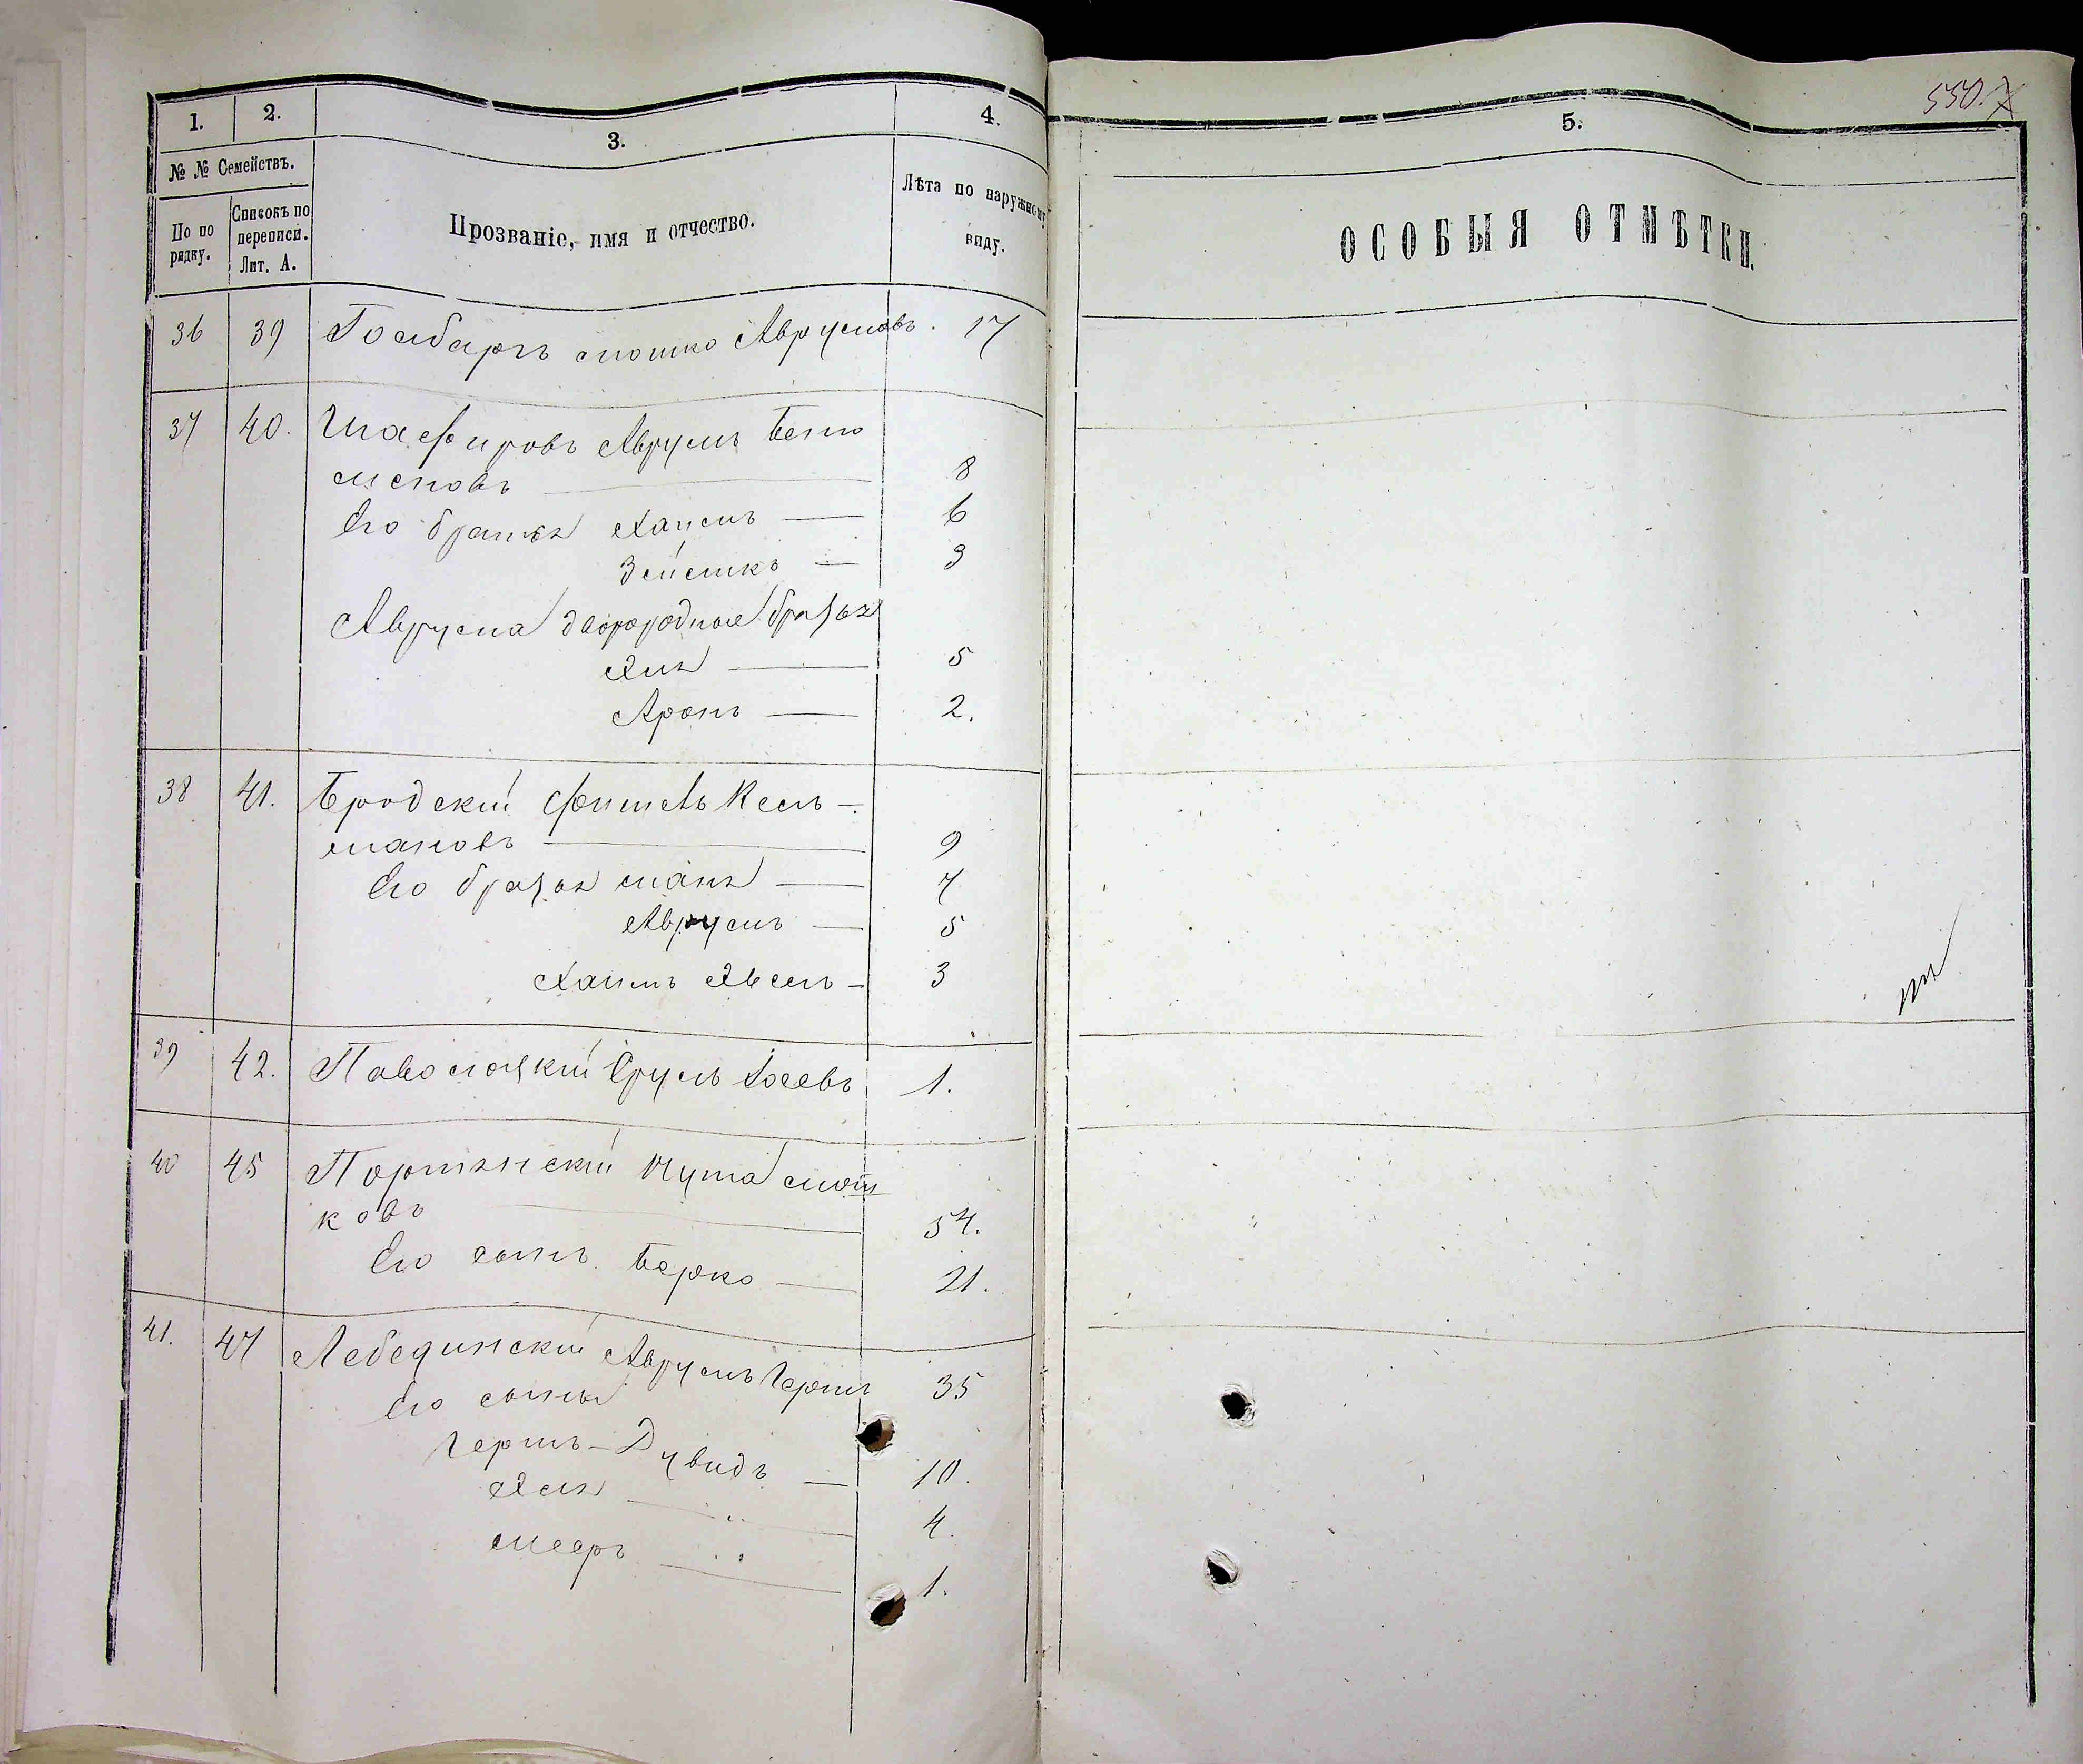 550.
1.
2.
3.
4.
5.
№ № Семействъ.
По по
рядку.
Списокъ по
переписи.
Лит. А.
Прозваніе, имя и отчество.
Лѣта по наружному
виду.
ОСОБЫЯ ОТМѢТКИ.
36 39 Гольбаргъ Мошко Аврумовъ. 17
37 40. Шафировъ Аврумъ Беню
миновъ 8
Его братья Хаимъ 6
Зейликъ 3
Аврума двоюродные братья
Янк 5
Аронъ 2.
38 41. Бродскій Фишель Кель-
мановъ 9
Его братья Маня 7
Аврумъ 5
Хаимъ 3
39 42. Паволоцкій Сруль Іосевъ 1.
40 45 Портянскій Нута Мош
ковъ 54.
Его сынъ Берко 21.
41. 47 Лебединскій Аврумъ Герш 35
Его сыны
Гершъ-Дувидъ 10.
4.
Мееръ 1.